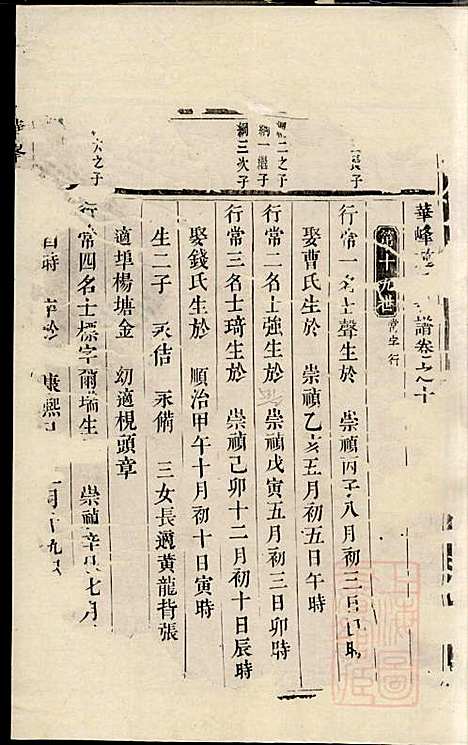 華峰 譜卷之十
第十九世 常字行
長子
行常一名士聲生於 崇禎丙子八月初三日 時
娶曹氏生於 崇禎乙亥五月初五日午時
二之子
綱一繼子
行常二名士強生於 崇禎戊寅五月初三日卯時
綱三次子
行常三名士琦生於 崇禎己卯十二月初十日辰時
娶錢氏生於 順治甲午十月初十日寅時
生二子 永佶 永備 三女長適黃龍背張
適埠楊塘金 幼適梘頭章
六之子
行常四名士標字爾瑞生 崇禎辛巳七月
酉時 康熙 月十九日